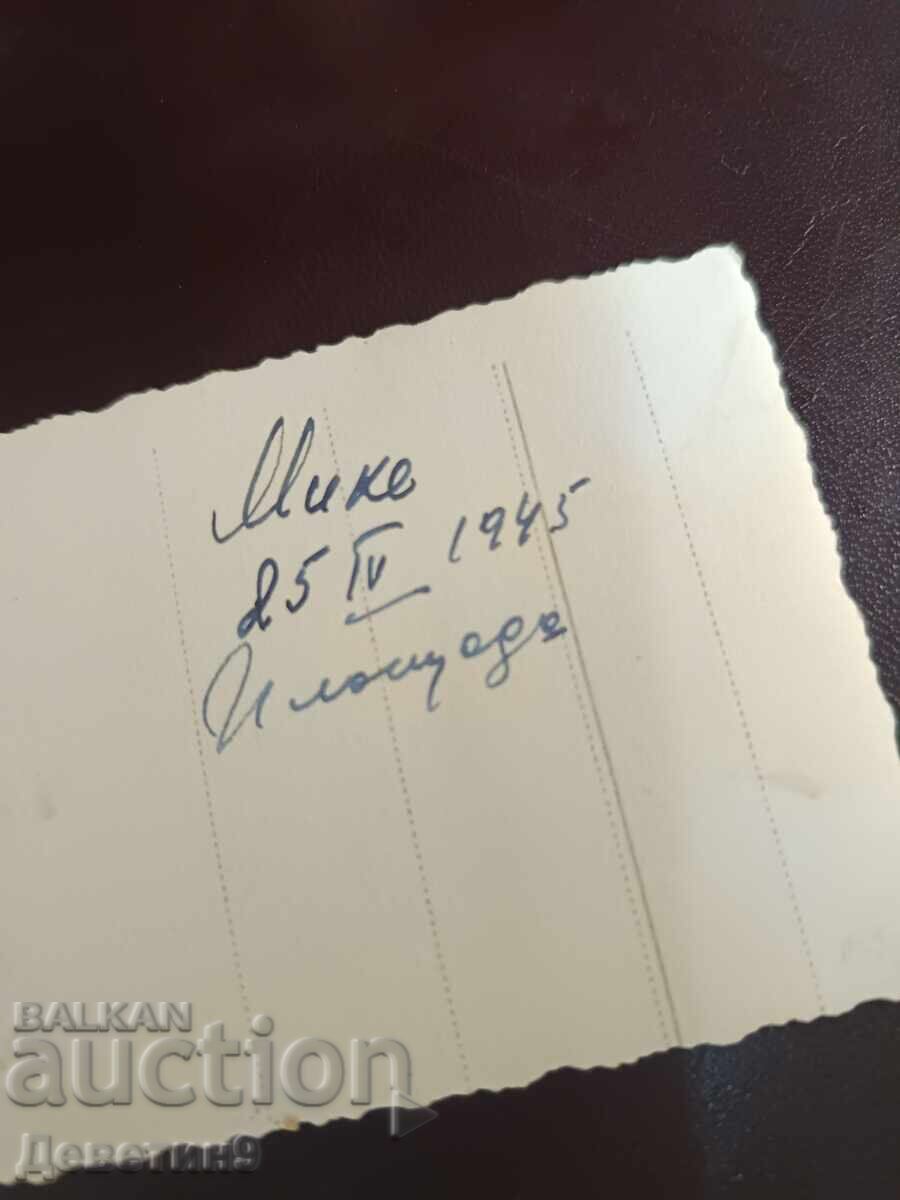 Мике
25 IV 1945
Площада
BALKAN
auction
Деветин9